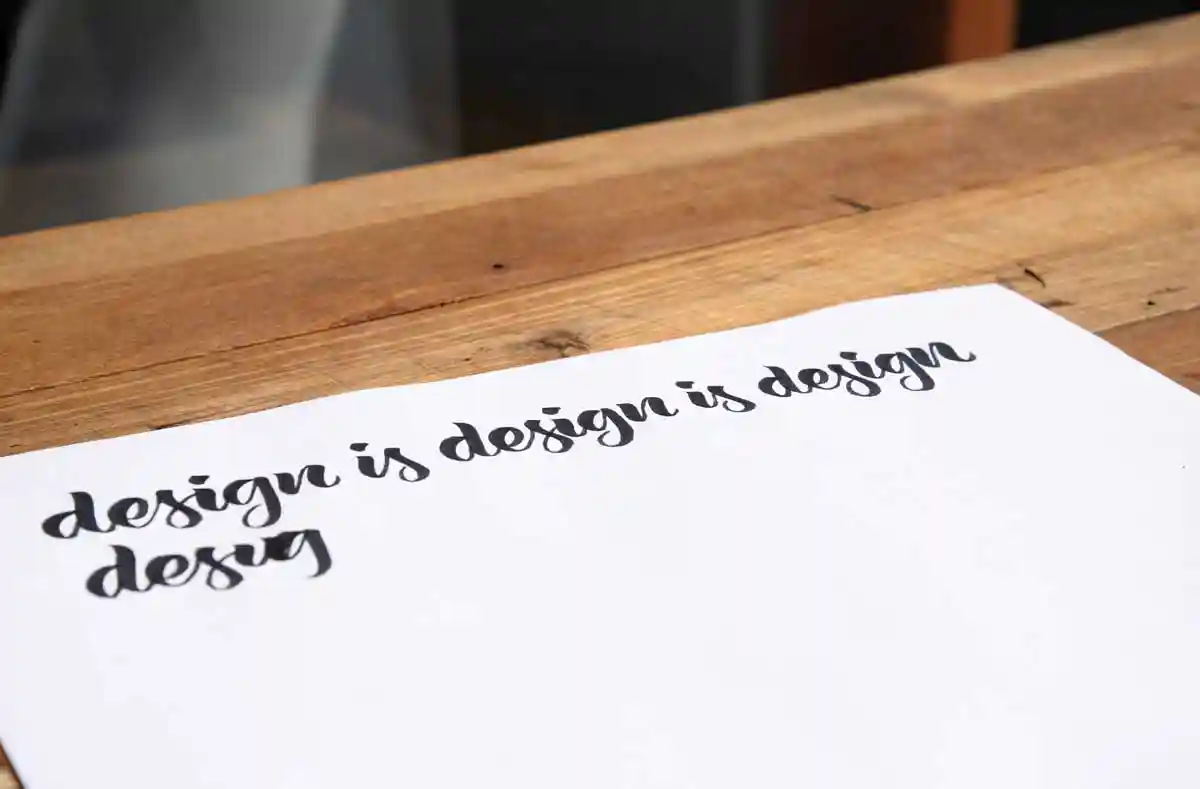 design is design is design
desig